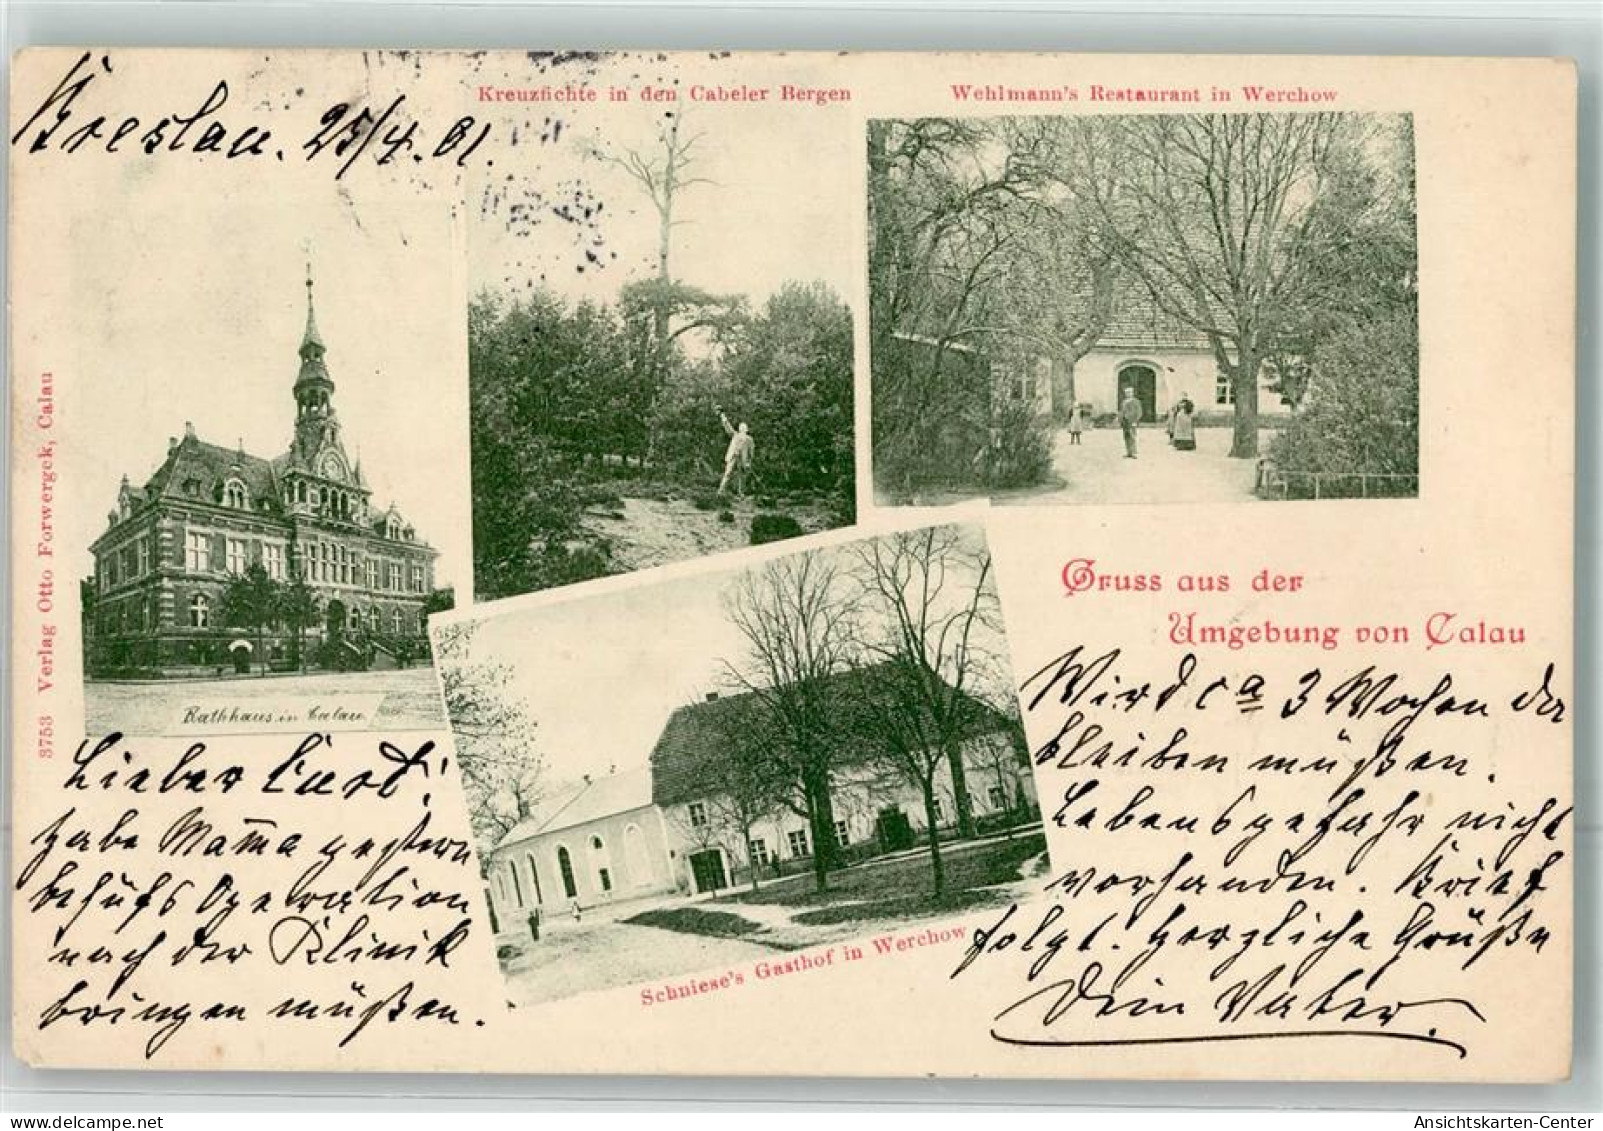 Breslau. 25/4.01.
Kreuzfichte in den Cabeler Bergen
Wehlmann's Restaurant in Werchow
3753 Verlag Otto Forwergek, Calau
Rathhaus in Calau
Gruss aus der
Umgebung von Calau
Schniese's Gasthof in Werchow
Lieber Curt!
Habe Mama gestern
behufs Operation
nach der Klinik
bringen müßen.
Wird ca 3 Wochen da
bleiben müßen.
Lebensgefahr nicht
vorhanden. Brief
folgt. Herzliche Grüße
Dein Vater.
Ansichtskarten-Center